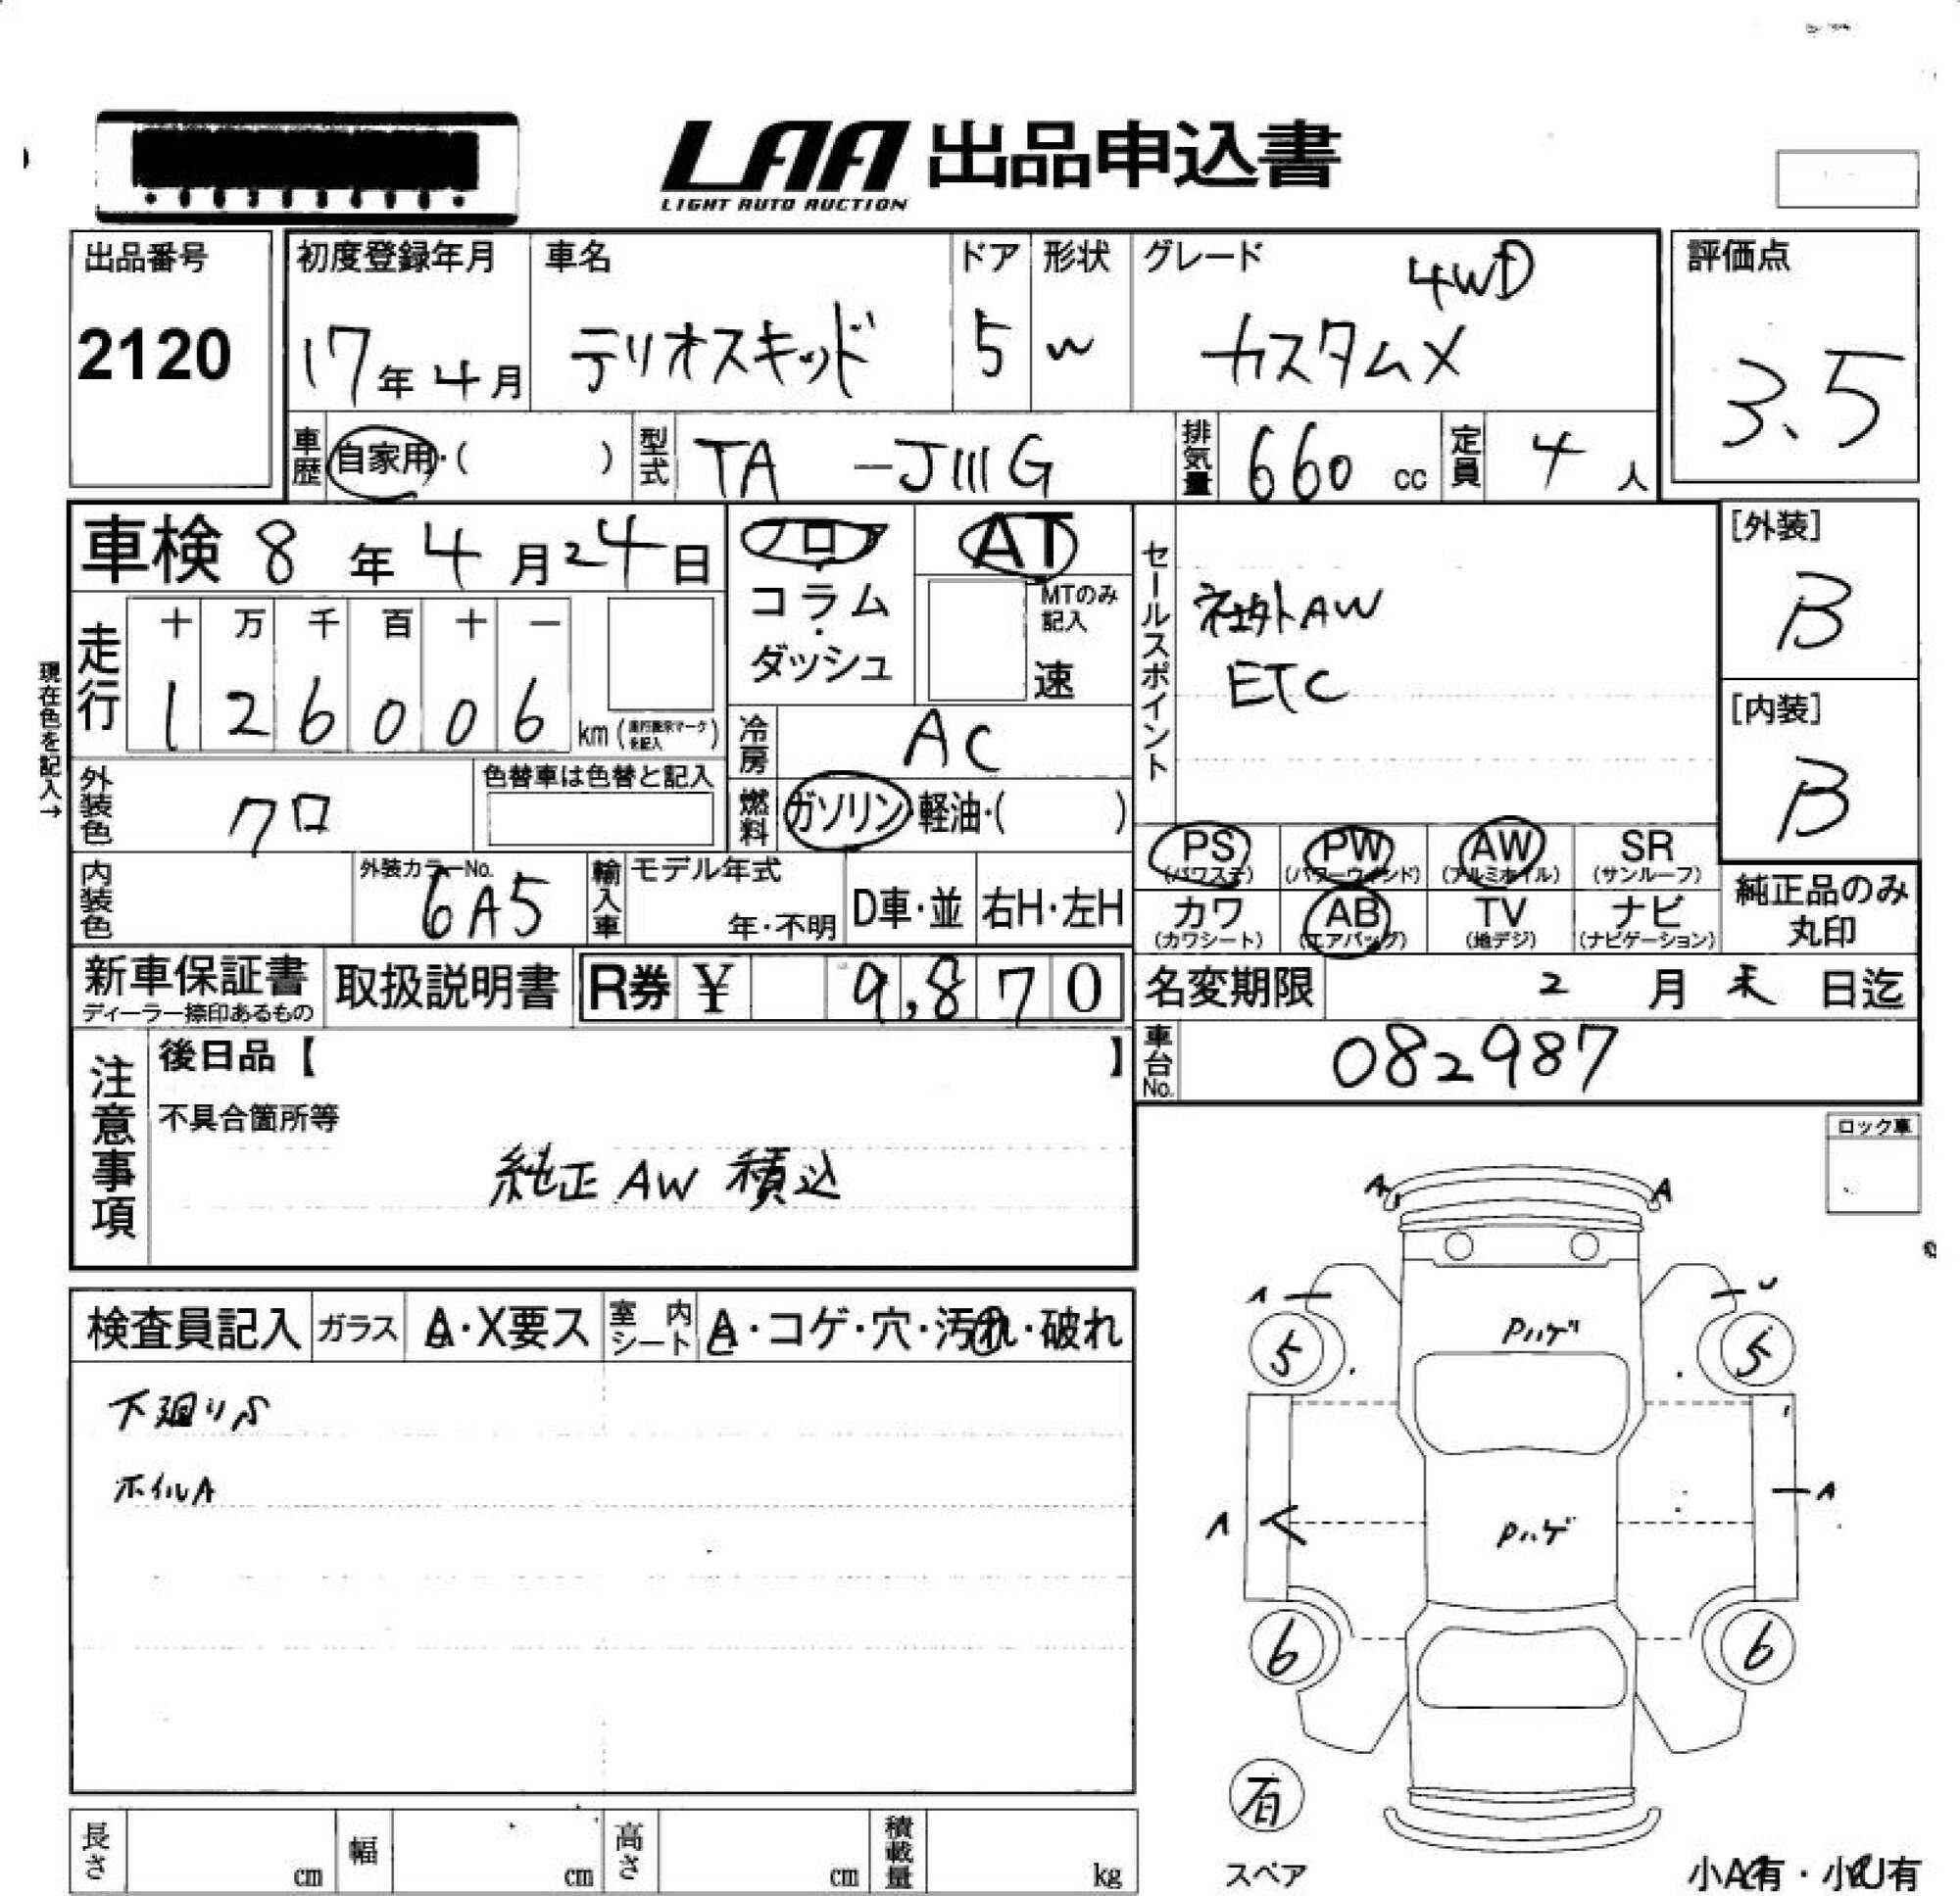 LAA 出品申込書
LIGHT AUTO AUCTION
出品番号
2120
初度登録年月
17年4月
車名
テリオスキッド
ドア
5
形状
W
グレード
4WD
カスタムX
評価点
3.5
車歴
自家用・( )
型式
TA -J111G
排気量
660 cc
定員
4 人
車検 8年4月24日
フロア
コラム
・
ダッシュ
AT
MTのみ
記入
速
セールスポイント
社外AW
ETC
[外装]
B
[内装]
B
現在色を記入→
走行
十 万 千 百 十 一
1 2 6 0 0 6 km
冷房
AC
燃料
ガソリン・軽油・( )
外装色
クロ
色替車は色替と記入
内装色
外装カラーNo.
6A5
輸入車
モデル年式
年・不明
D車・並
右H・左H
PS
(パワステ)
PW
(パワーウィンド)
AW
(アルミホイル)
SR
(サンルーフ)
カワ
(カワシート)
AB
(エアバッグ)
TV
(地デジ)
ナビ
(ナビゲーション)
純正品のみ
丸印
新車保証書
ディーラー捺印あるもの
取扱説明書
R券 ¥ 9,870
名変期限 2月末日迄
車台No.
082987
注意事項
後日品【 】
不具合箇所等
純正AW積込
ロック車
検査員記入
ガラス
A・X要ス
室内シート
A・コゲ・穴・汚れ・破れ
下廻りS
ホイルA
A A
A
U
Pハゲ
5 5
A
A
Pハゲ
6 6
有
スペア
小A有・小U有
長さ cm
幅 cm
高さ cm
積載量 kg